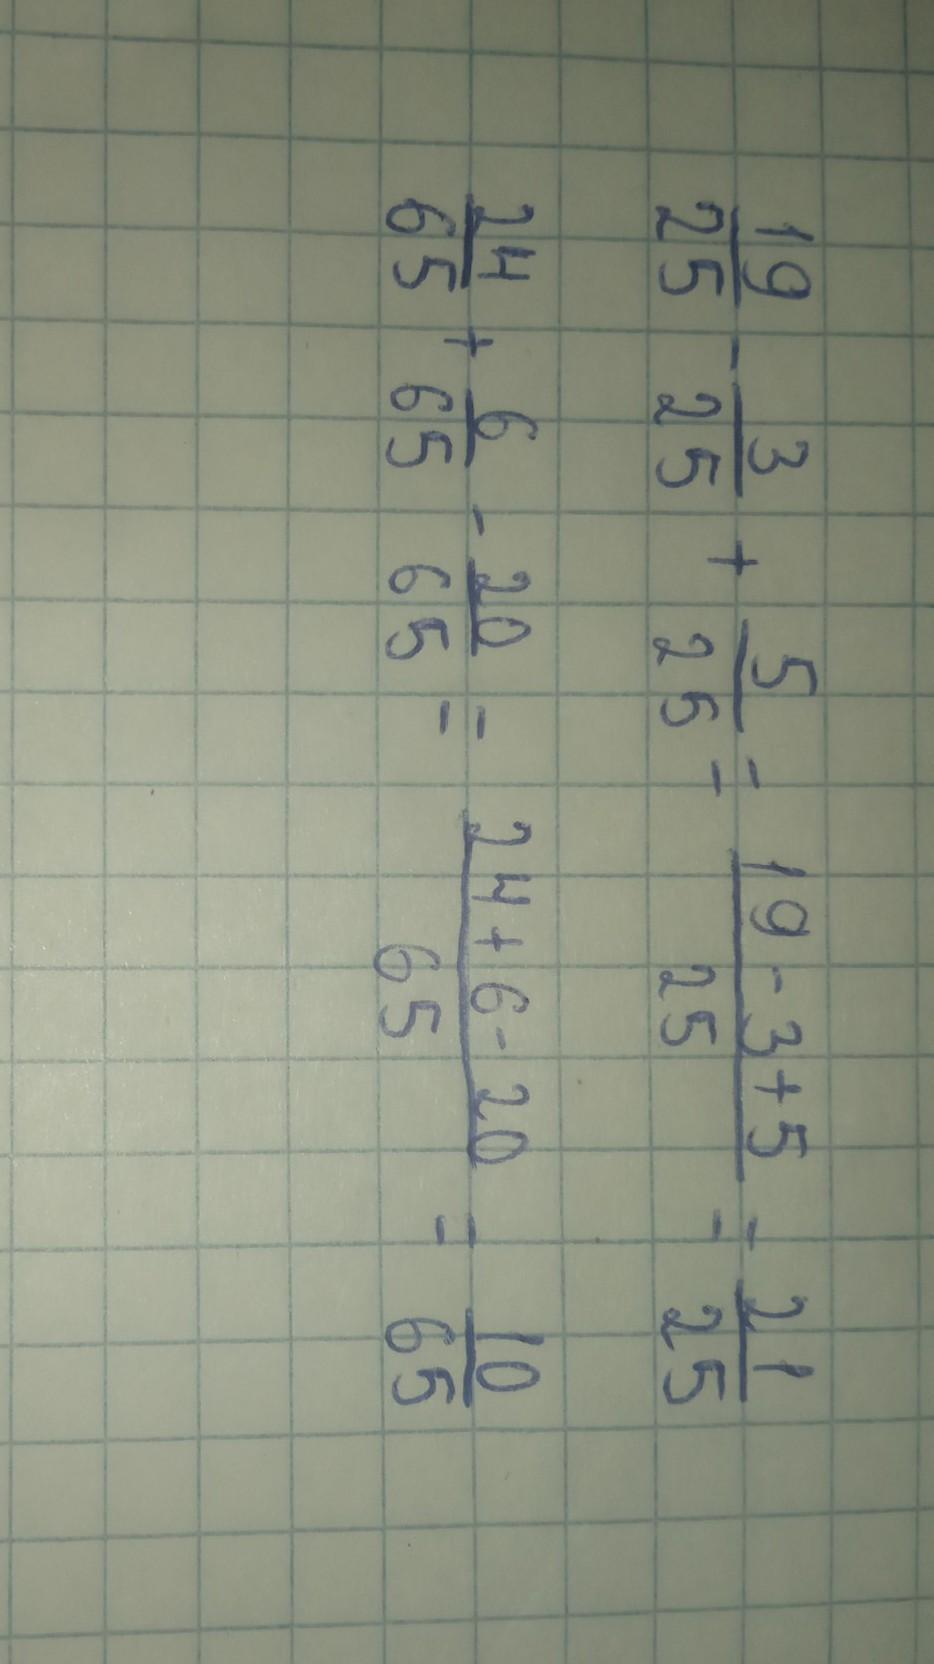 19/25 - 3/25 + 5/25 = (19 - 3 + 5)/25 = 21/25
24/65 + 6/65 - 20/65 = (24 + 6 - 20)/65 = 10/65